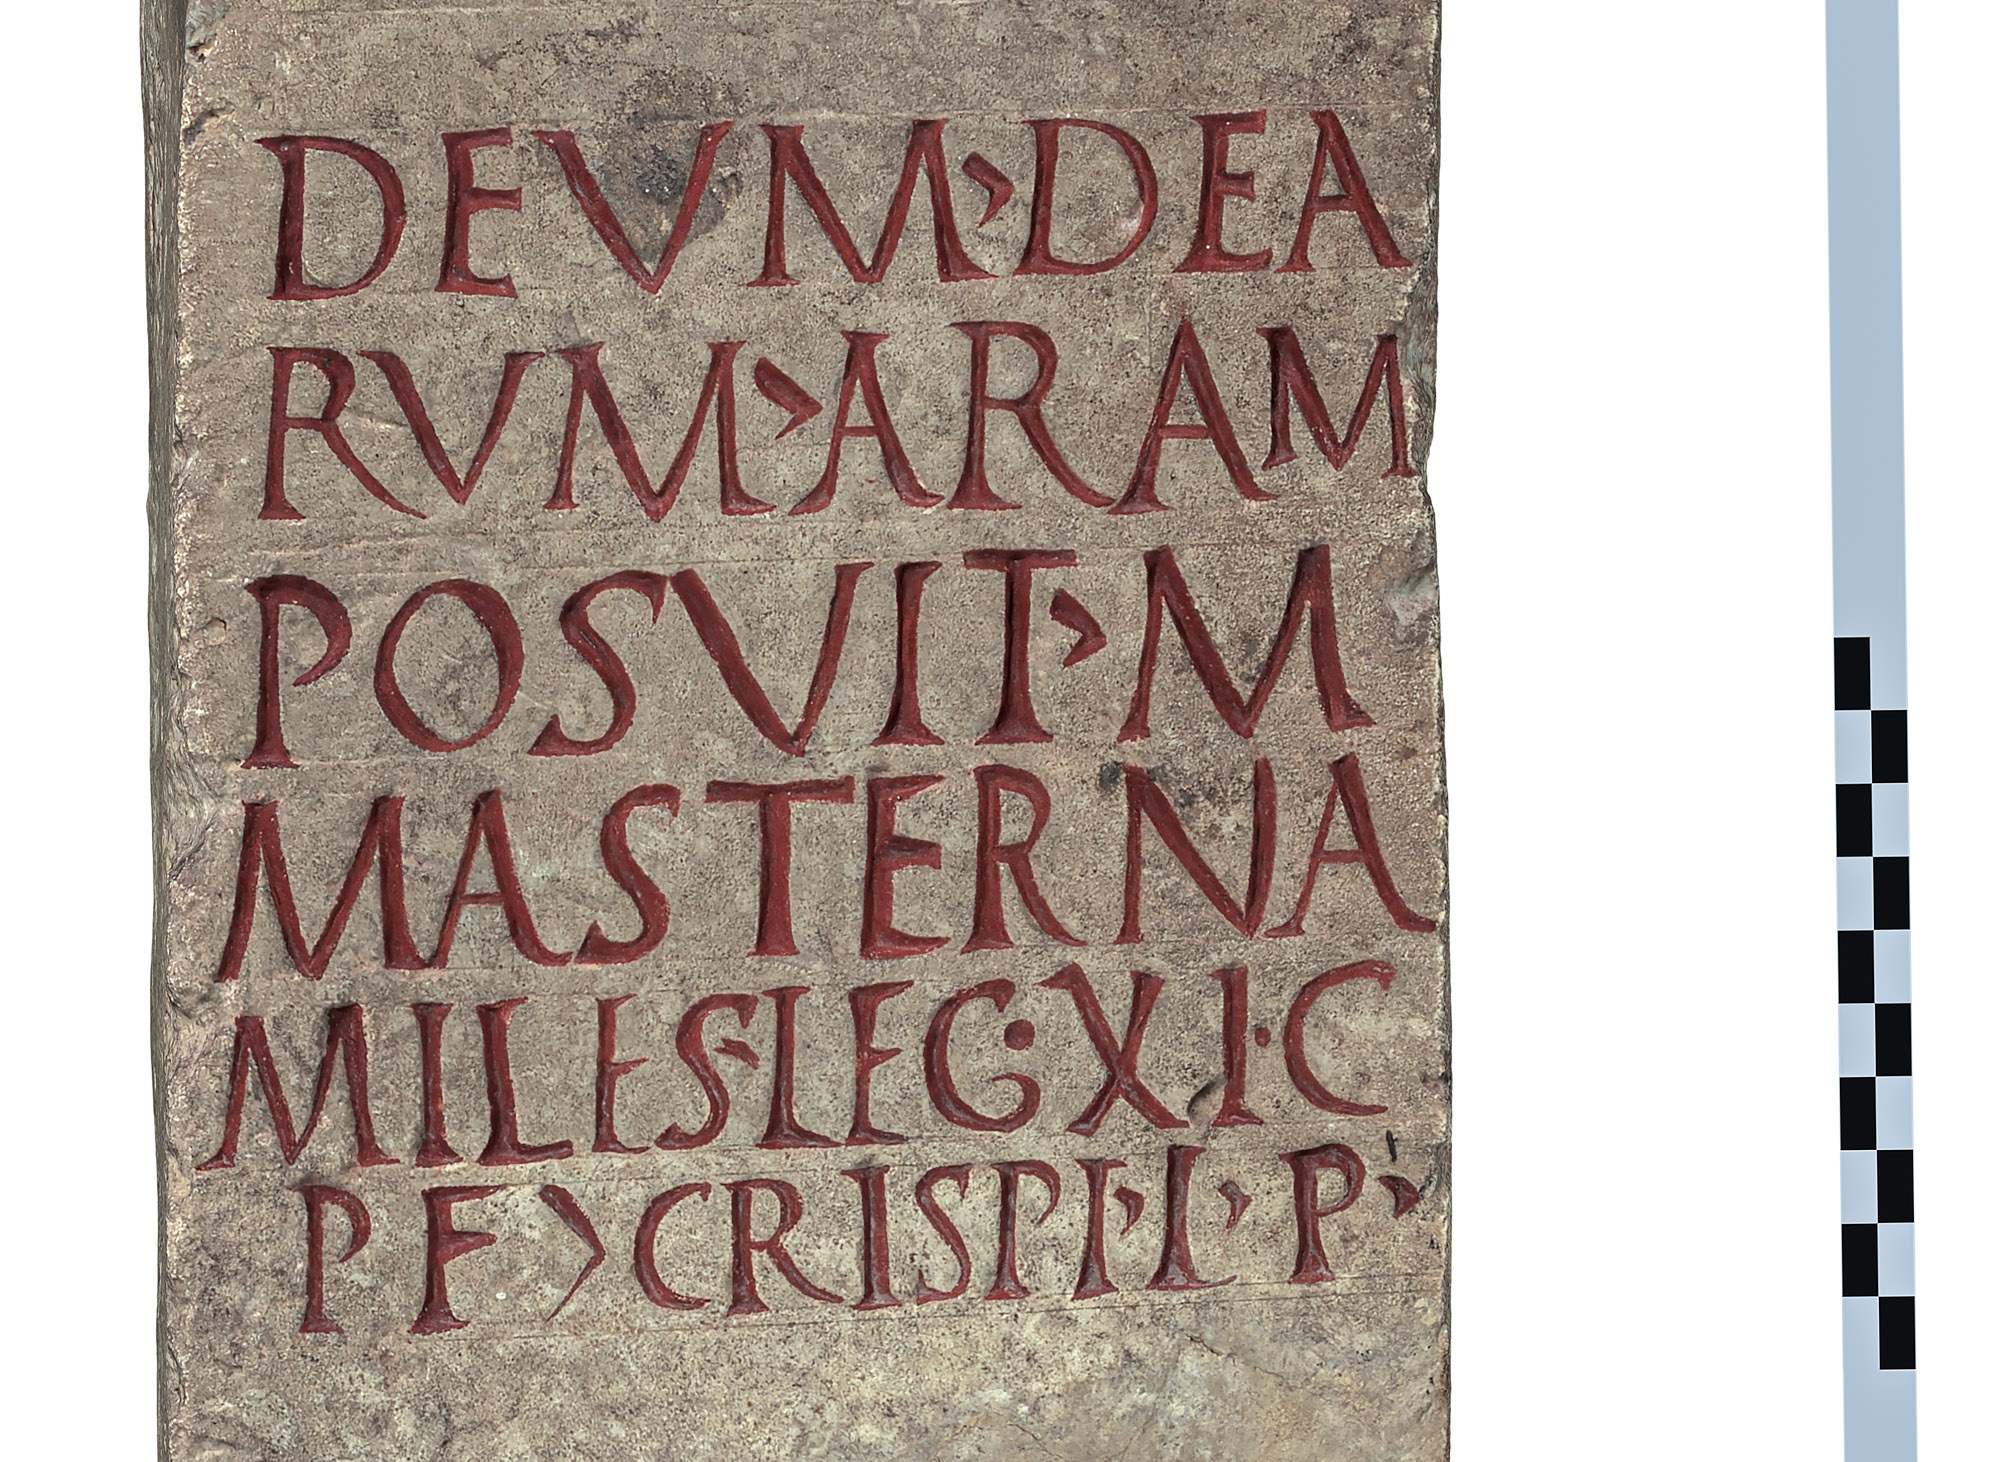 DEVM · DEA
RVM · ARAM
POSVIT · M
MASTERNA
MILES · LEG · XI · C
PF > CRISPI · L · P ·